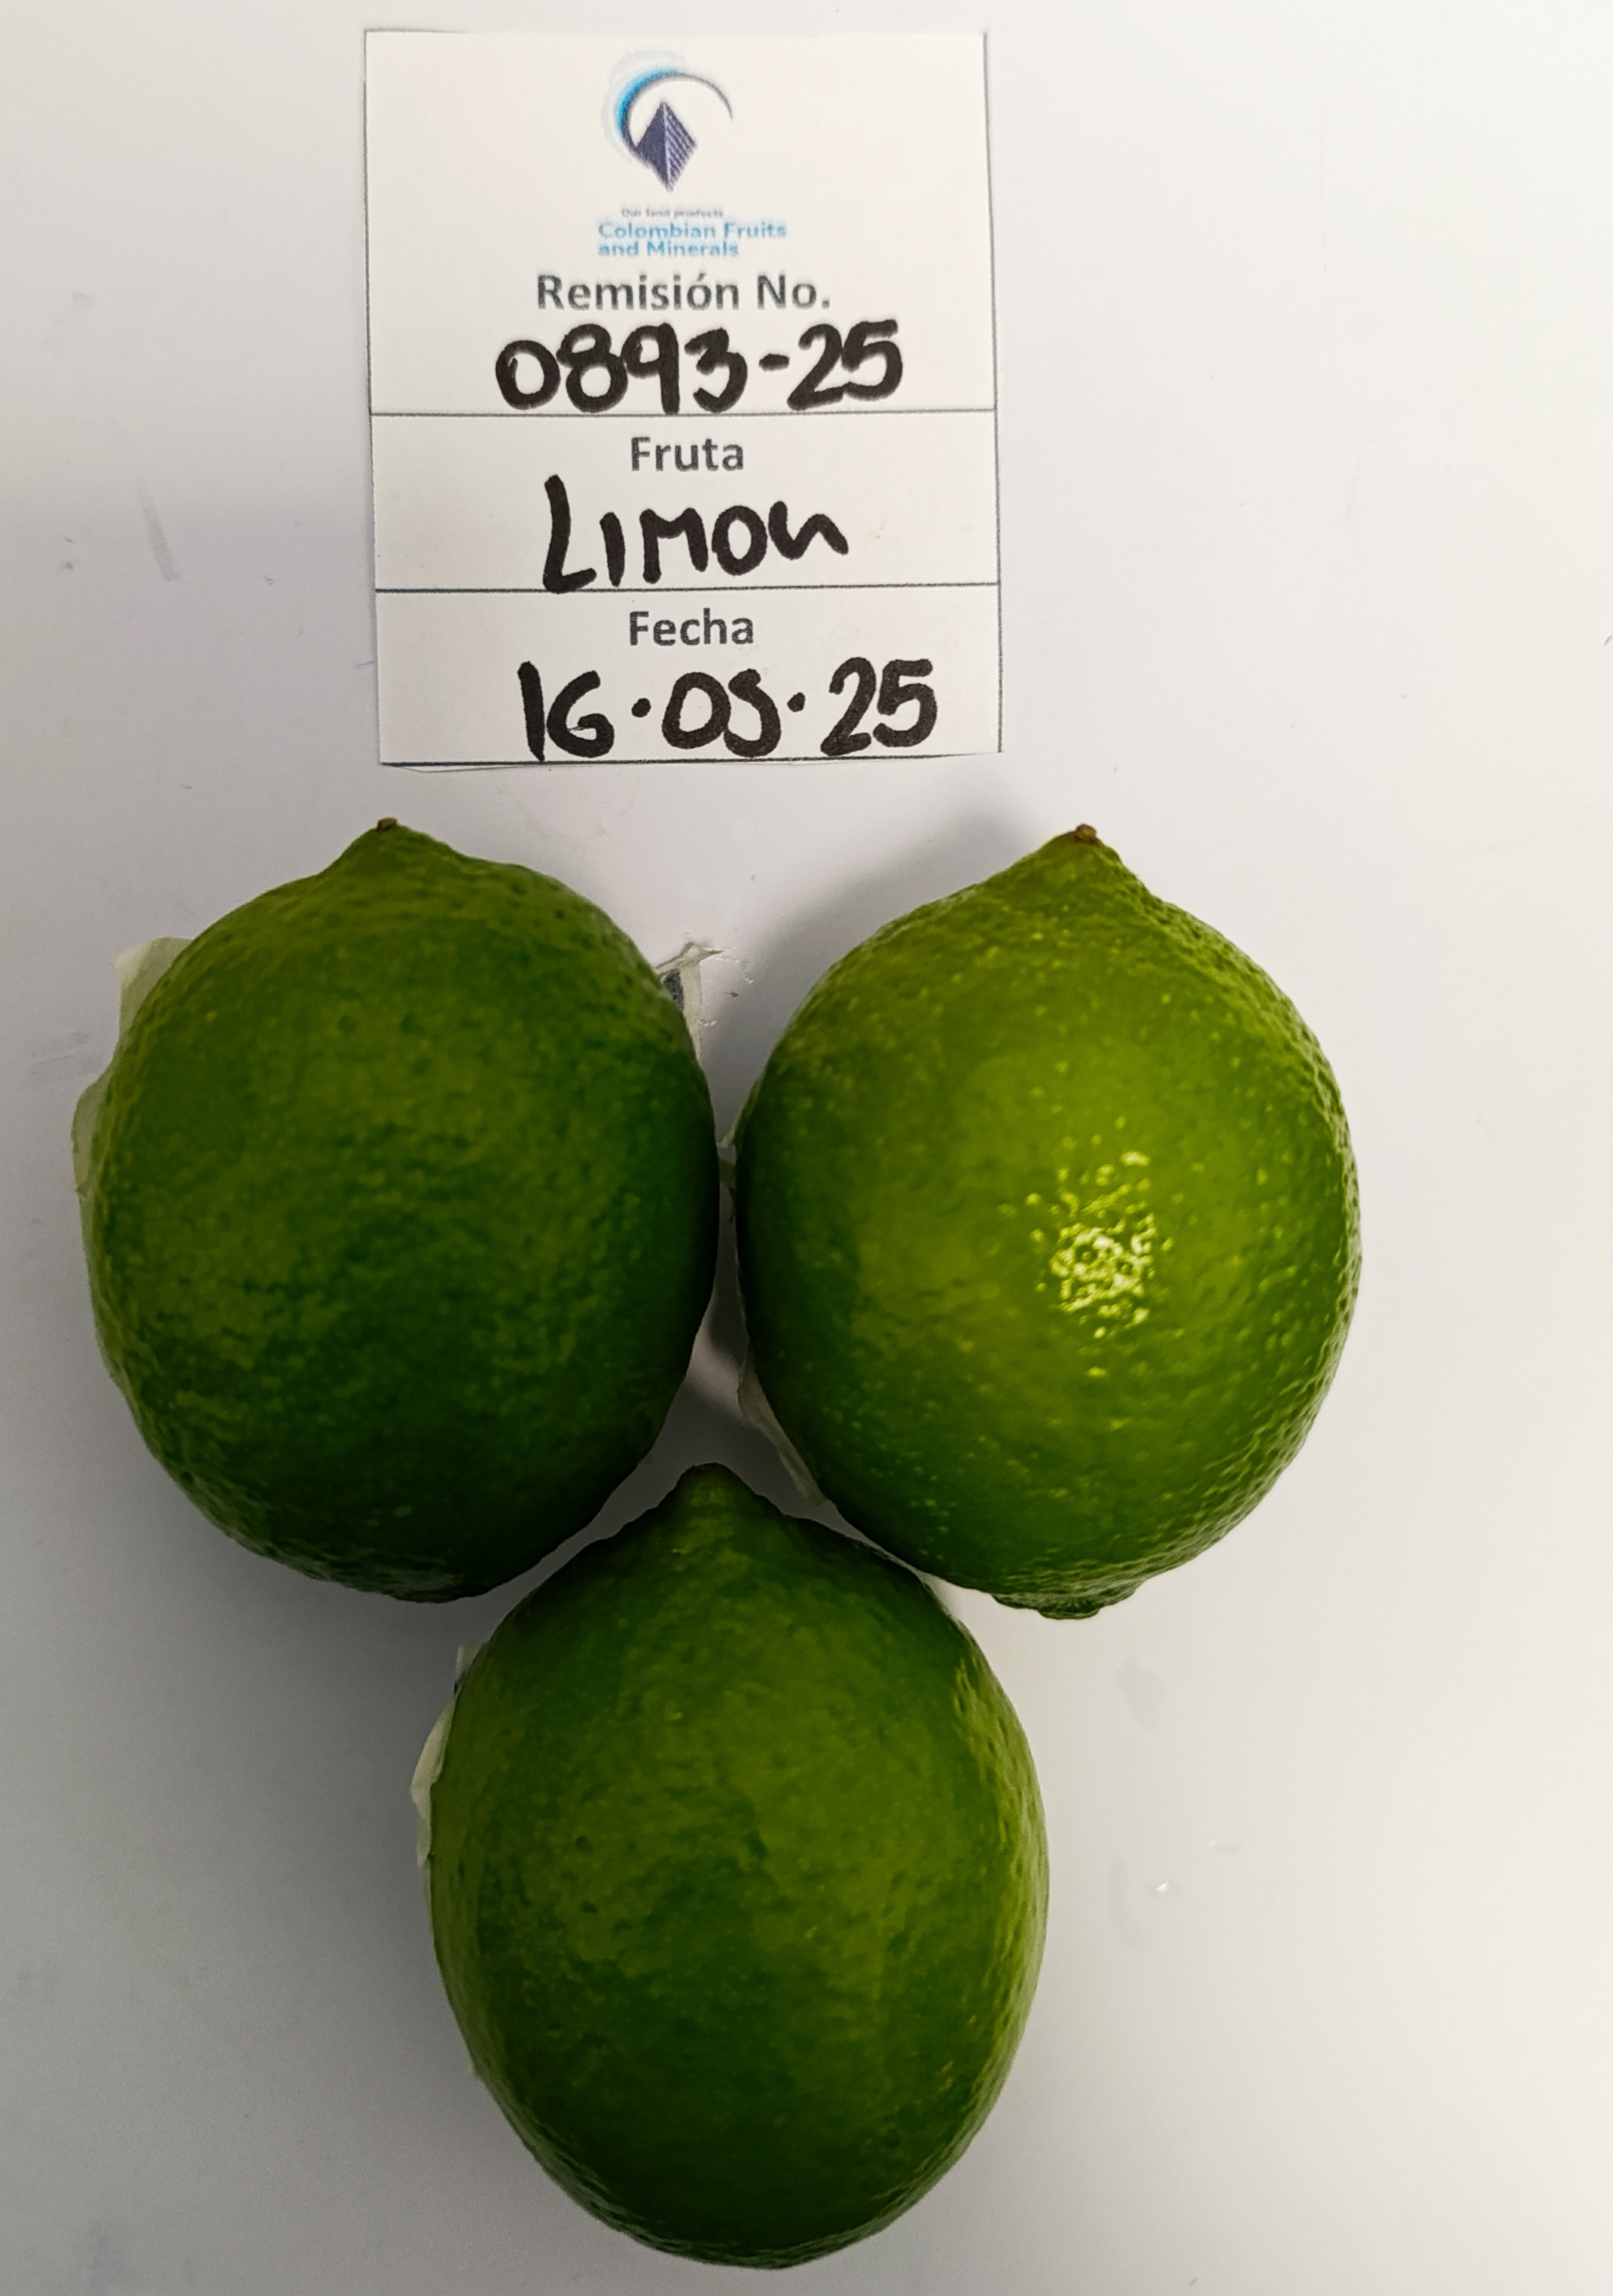 Our land products
Colombian Fruits
and Minerals
Remisión No.
0893-25
Fruta
LIMON
Fecha
16.05.25